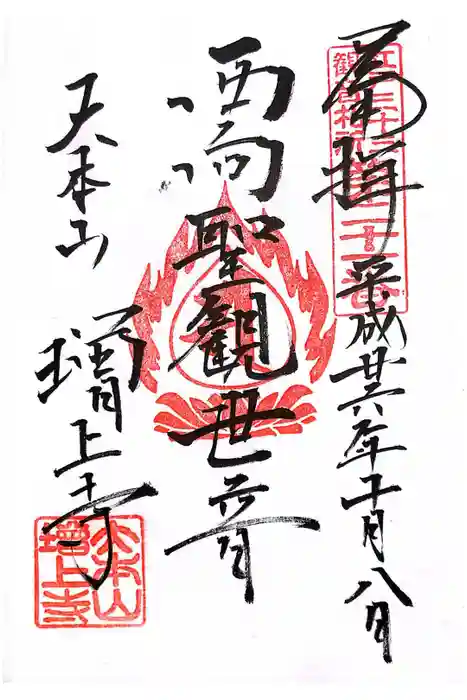 奉拝 平成廿六年十月八日
江戸三十三観音札所第二十一番
西向聖観世音
大本山
増上寺
大本山増上寺